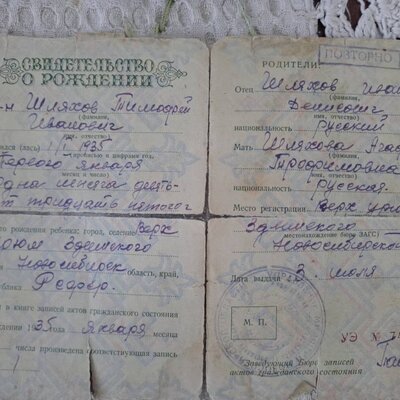 СВИДЕТЕЛЬСТВО
О РОЖДЕНИИ
н Шляхов Тимофей
(фамилия,
Иванович
имя, отчество)
лся(лась) 1/I 1935
прописью и цифрами год,
Первого января
месяц и число)
одна тысяча девять
т тридцать пятого г
о рождения ребенка: город, селение Верх
Здвинского
Новосибирск область, край,
блика Рсфср.
м в книге записей актов гражданского состояния
дении 1935 года января месяца
числа произведена соответствующая запись
РОДИТЕЛИ:
ПОВТОРНО
Отец Шляхов Иван
(фамилия,
Денисович
имя, отчество)
национальность русский
Мать Шляхова Агаф
(фамилия,
Трофимовна
имя, отчество)
национальность русская
Место регистрации Верх
Здвинского
местонахождение бюро ЗАГС)
Новосибирской
Дата выдачи 3. июля
М. П.
УЭ №
Заведующий Бюро записей
актов гражданского состояния